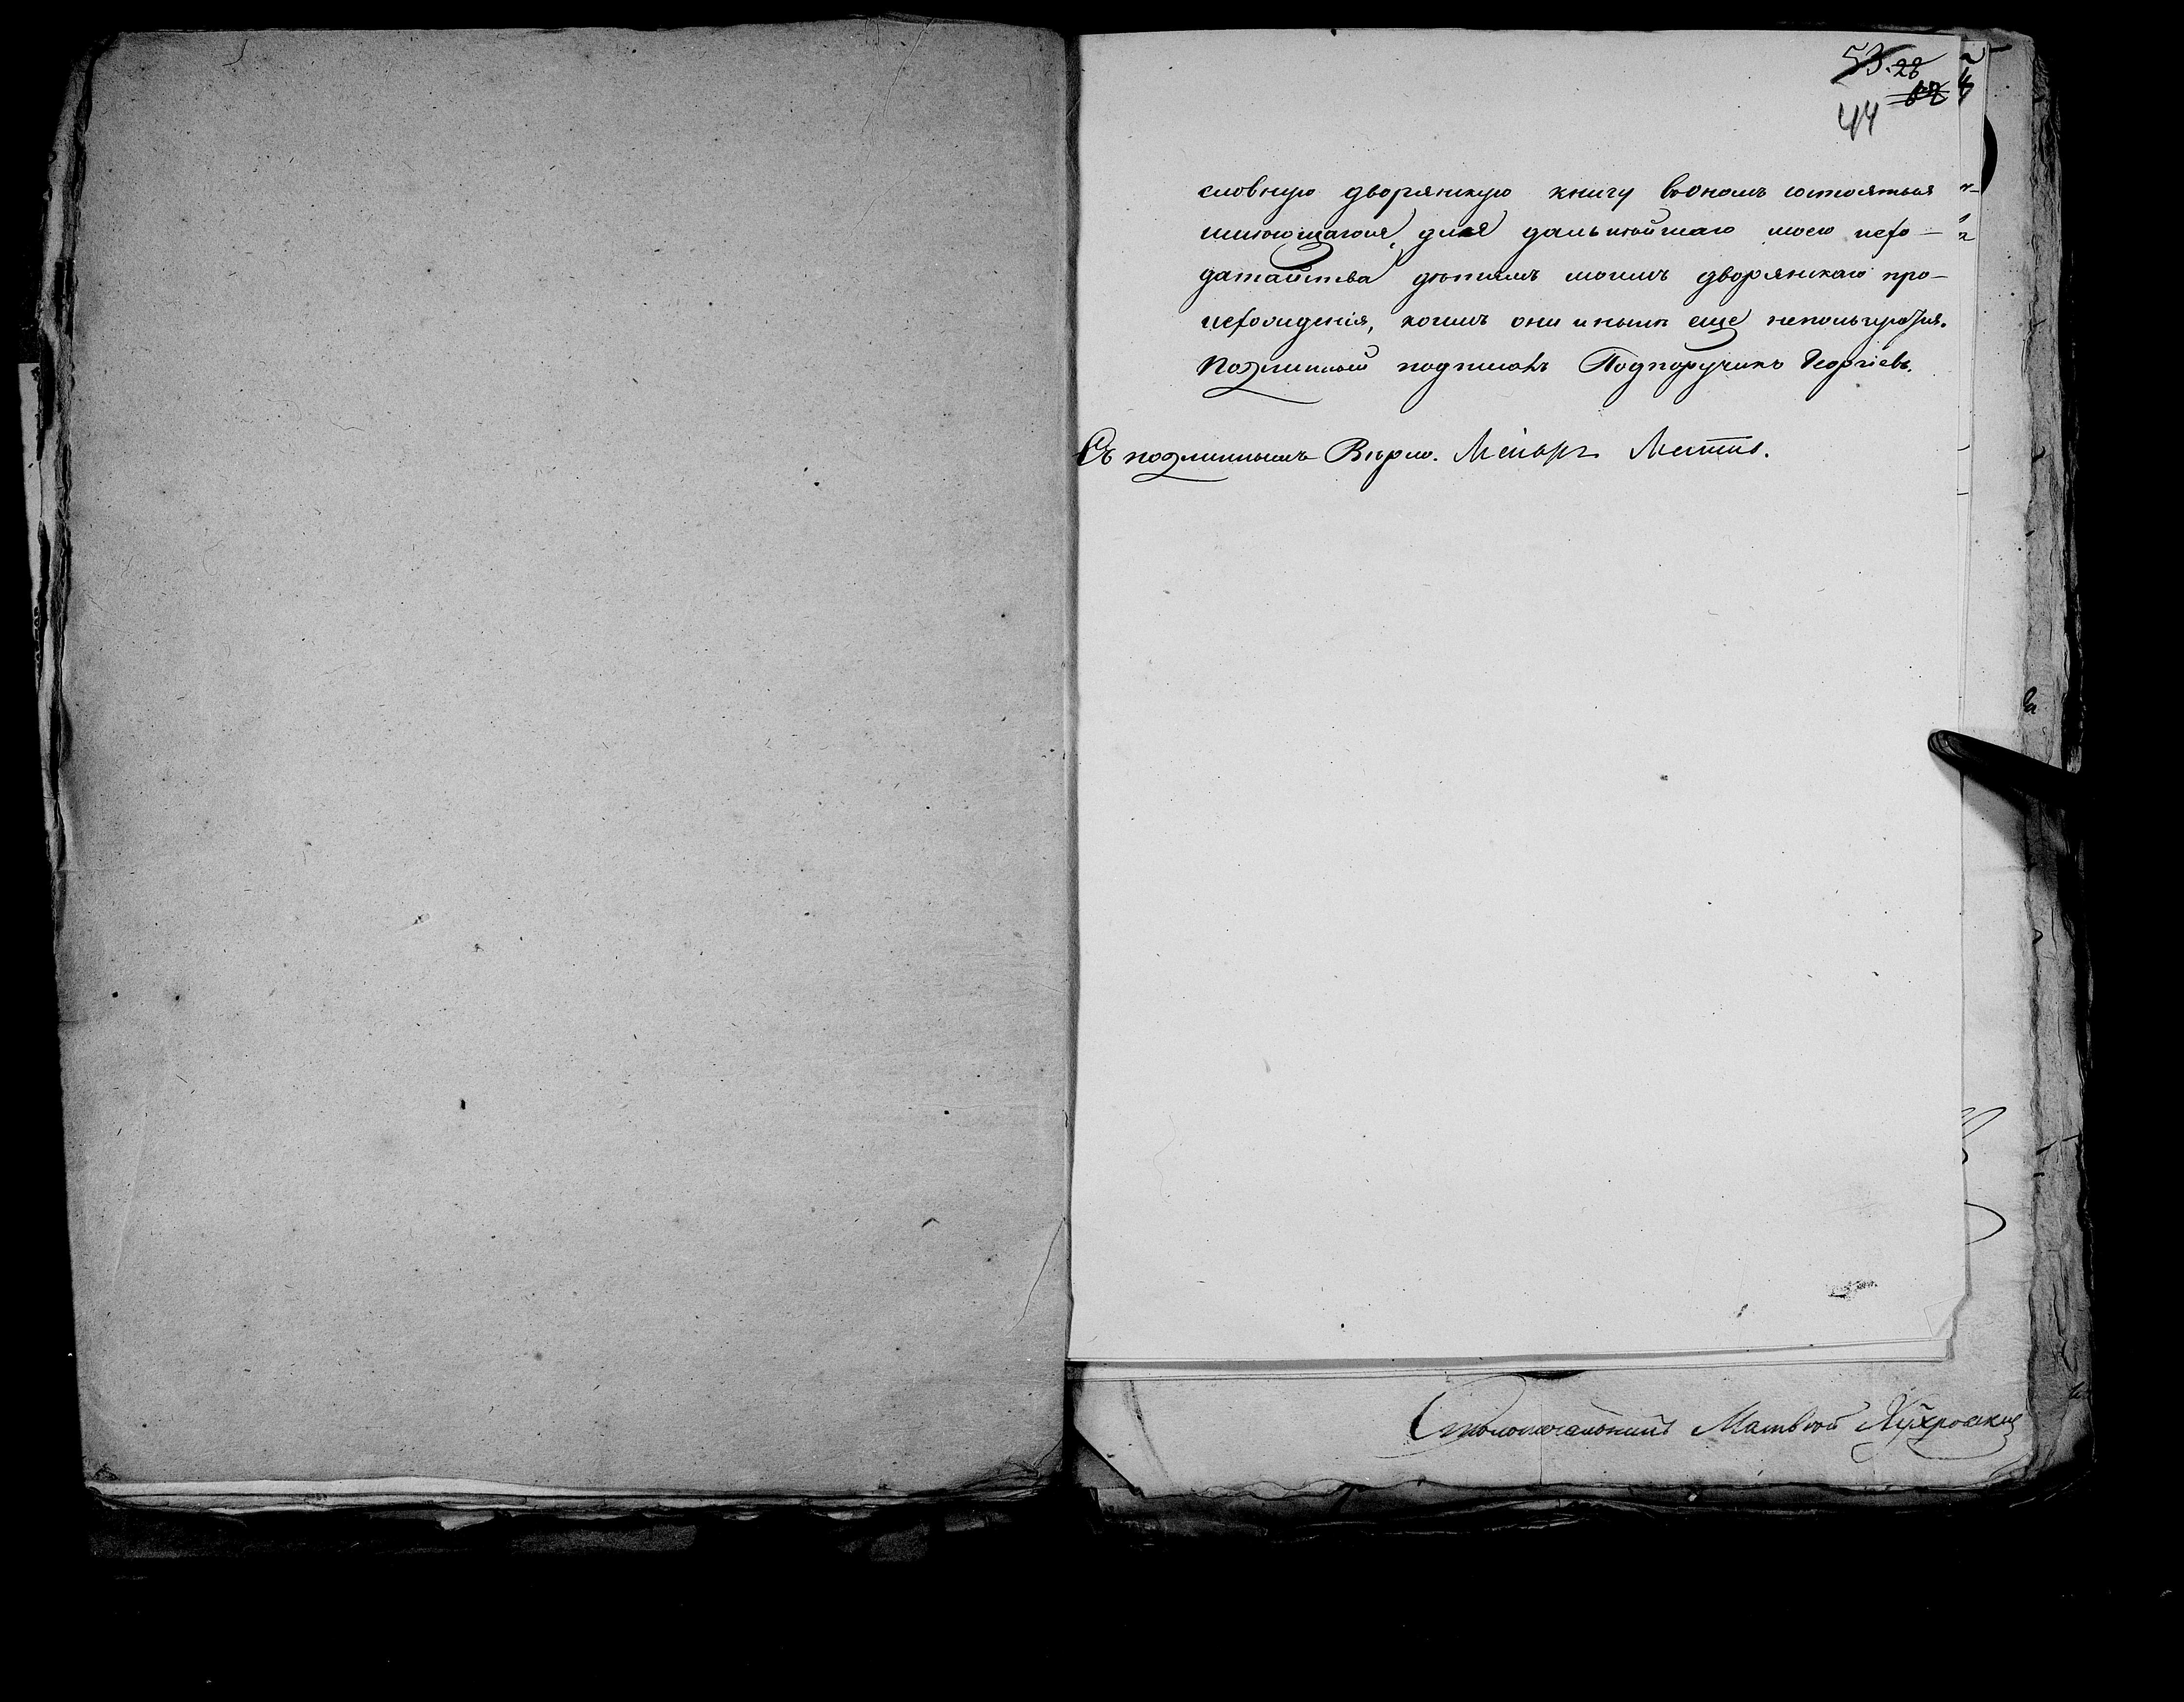 53. 28
62
44
словную дворянскую книгу воономъ состояться
имѣющагося, для дальнѣйшаго моего исхо-
датайства дѣтямъ моимъ дворянскаго про-
исхожденія, коимъ они и нынѣ еще непользуются.
Подлинной подписалъ Подпоручикъ Георгіевъ.
Съ подлиннымъ Вѣрно. Маіоръ
Столоначальникъ Матвѣй